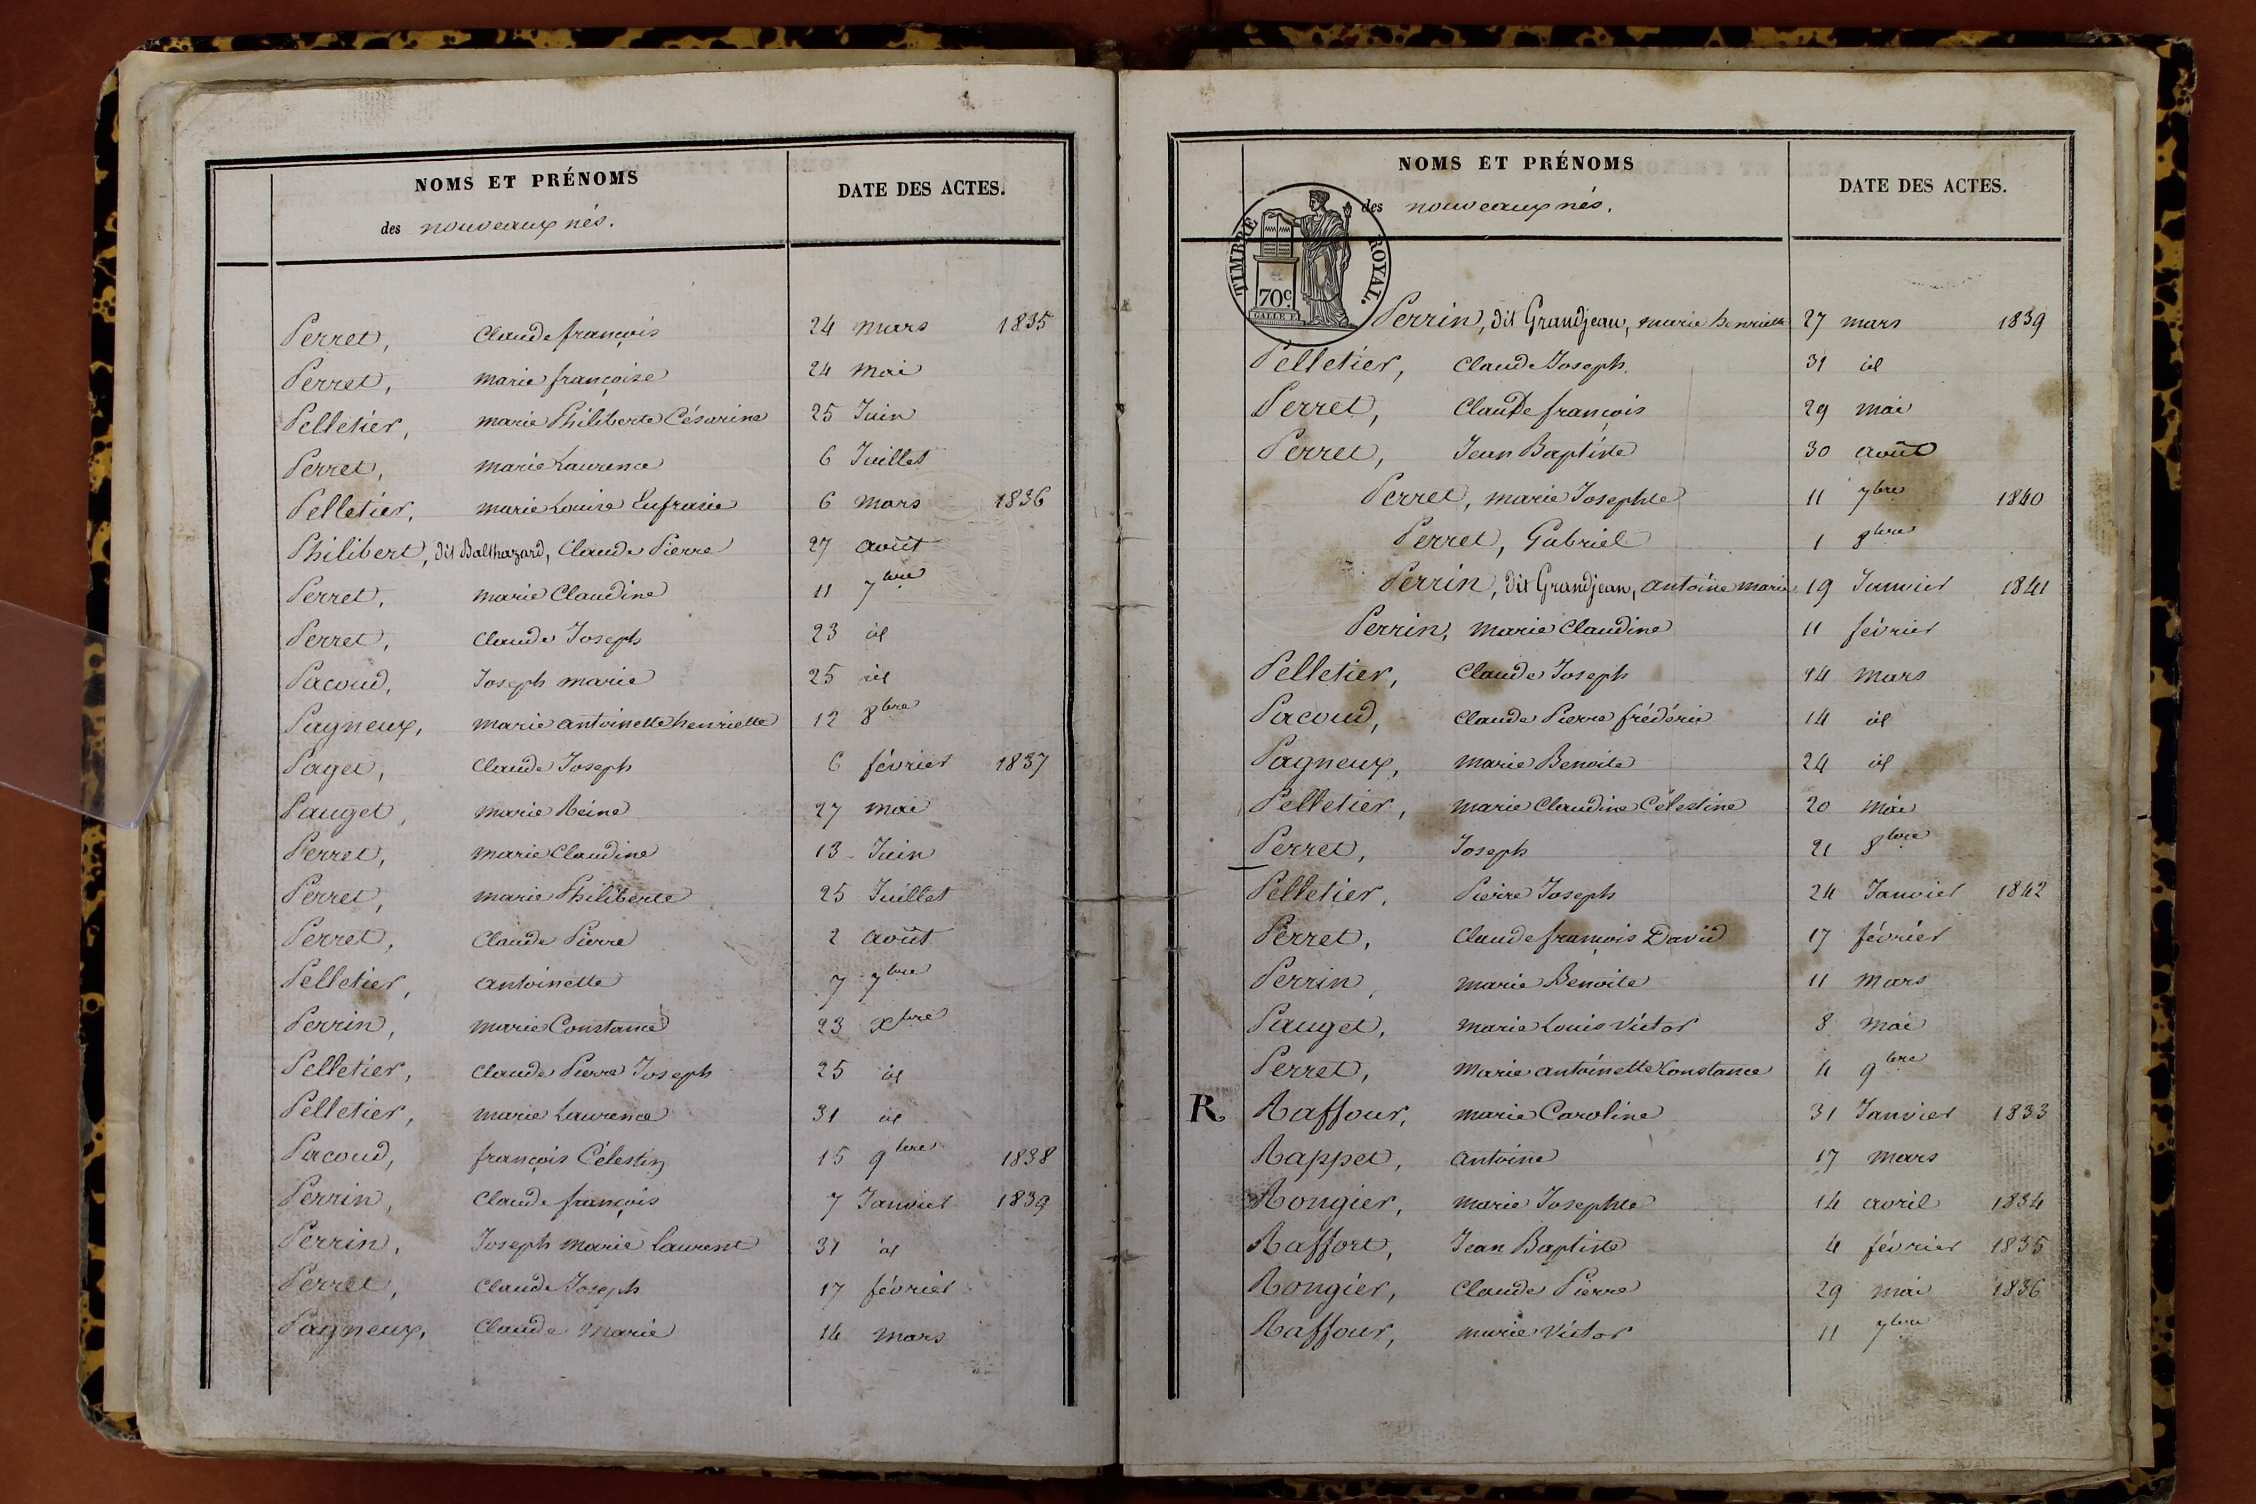 NOMS ET PRÉNOMS
des nouveaux nés.
DATE DES ACTES.
Perret, Claude françois 24 mars 1835
Perret, marie françoise 24 mai
Pelletier, marie Philiberte Césarine 25 Juin
Perret, marie Laurence 6 Juillet
Pelletier, marie Louise Eufrasie 6 mars 1836
Philibert, dit Balthazard, Claude Pierre 27 août
Perret, marie Claudine 11 7bre
Perret, Claude Joseph 23 id
Pacoud, Joseph marie 25 id
Pagneux, marie antoinette henriette 12 8bre
Paget, Claude Joseph 6 février 1837
Pauget, marie Reine 27 mai
Perret, marie Claudine 13 Juin
Perret, marie Philiberte 25 Juillet
Perret, Claude Pierre 2 août
Pelletier, antoinette 7 7bre
Perrin, marie Constance 23 xbre
Pelletier, Claude Pierre Joseph 25 id
Pelletier, marie Laurence 31 id
Pacoud, françois Célestin 15 9bre 1838
Perrin, Claude françois 7 Janvier 1839
Perrin, Joseph marie Laurent 31 id
Perret, Claude Joseph 17 février
Pagneux, Claude Marie 14 mars
NOMS ET PRÉNOMS
des nouveaux nés.
DATE DES ACTES.
TIMBRE ROYAL.
70c
Perrin, dit Grandjean, marie henriette 27 mars 1839
Pelletier, Claude Joseph. 31 id
Perret, Claude françois 29 mai
Perret, Jean Baptiste 30 août
Perret, marie Josephte 11 7bre 1840
Perret, Gabriel 1 8bre
Perrin, dit Grandjean, antoine marie 19 Janvier 1841
Perrin, marie Claudine 11 février
Pelletier, Claude Joseph 14 mars
Pacoud, Claude Pierre frédéric 14 id
Pagneux, marie Benoite 24 id
Pelletier, marie Claudine Célestine 20 mai
Perret, Joseph 21 8bre
Pelletier, Pierre Joseph 24 Janvier 1842
Perret, Claude françois David 17 février
Perrin, marie Benoite 11 mars
Pauget, marie Louis Victor 8 mai
Perret, marie antoinette Constance 4 9bre
R Raffour, marie Caroline 31 Janvier 1833
Rappet, antoine 17 mars
Rongier, marie Josephte 14 avril 1834
Raffort, Jean Baptiste 4 février 1835
Rongier, Claude Pierre 29 mai 1836
Raffour, marie Victor 11 7bre